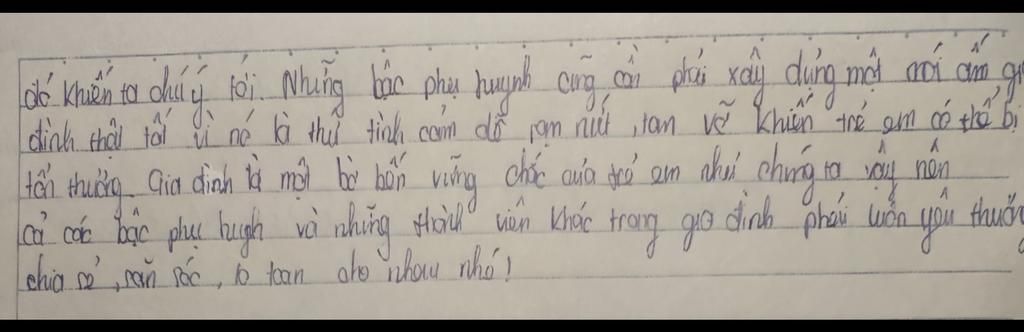 đó khiến ta chú ý tới. Những bậc phụ huynh cũng cần phải xây dựng một mái ấm gia
đình thật tốt vì nó là thứ tình cảm dễ rạn nứt, tan vỡ khiến trẻ em có thể bị
tổn thương. Gia đình là một bờ bến vững chắc của trẻ em như chúng ta vậy nên
cả các bậc phụ huynh và những thành viên khác trong gia đình phải luôn yêu thương
chia sẻ, săn sóc, lo toan cho nhau nhé!